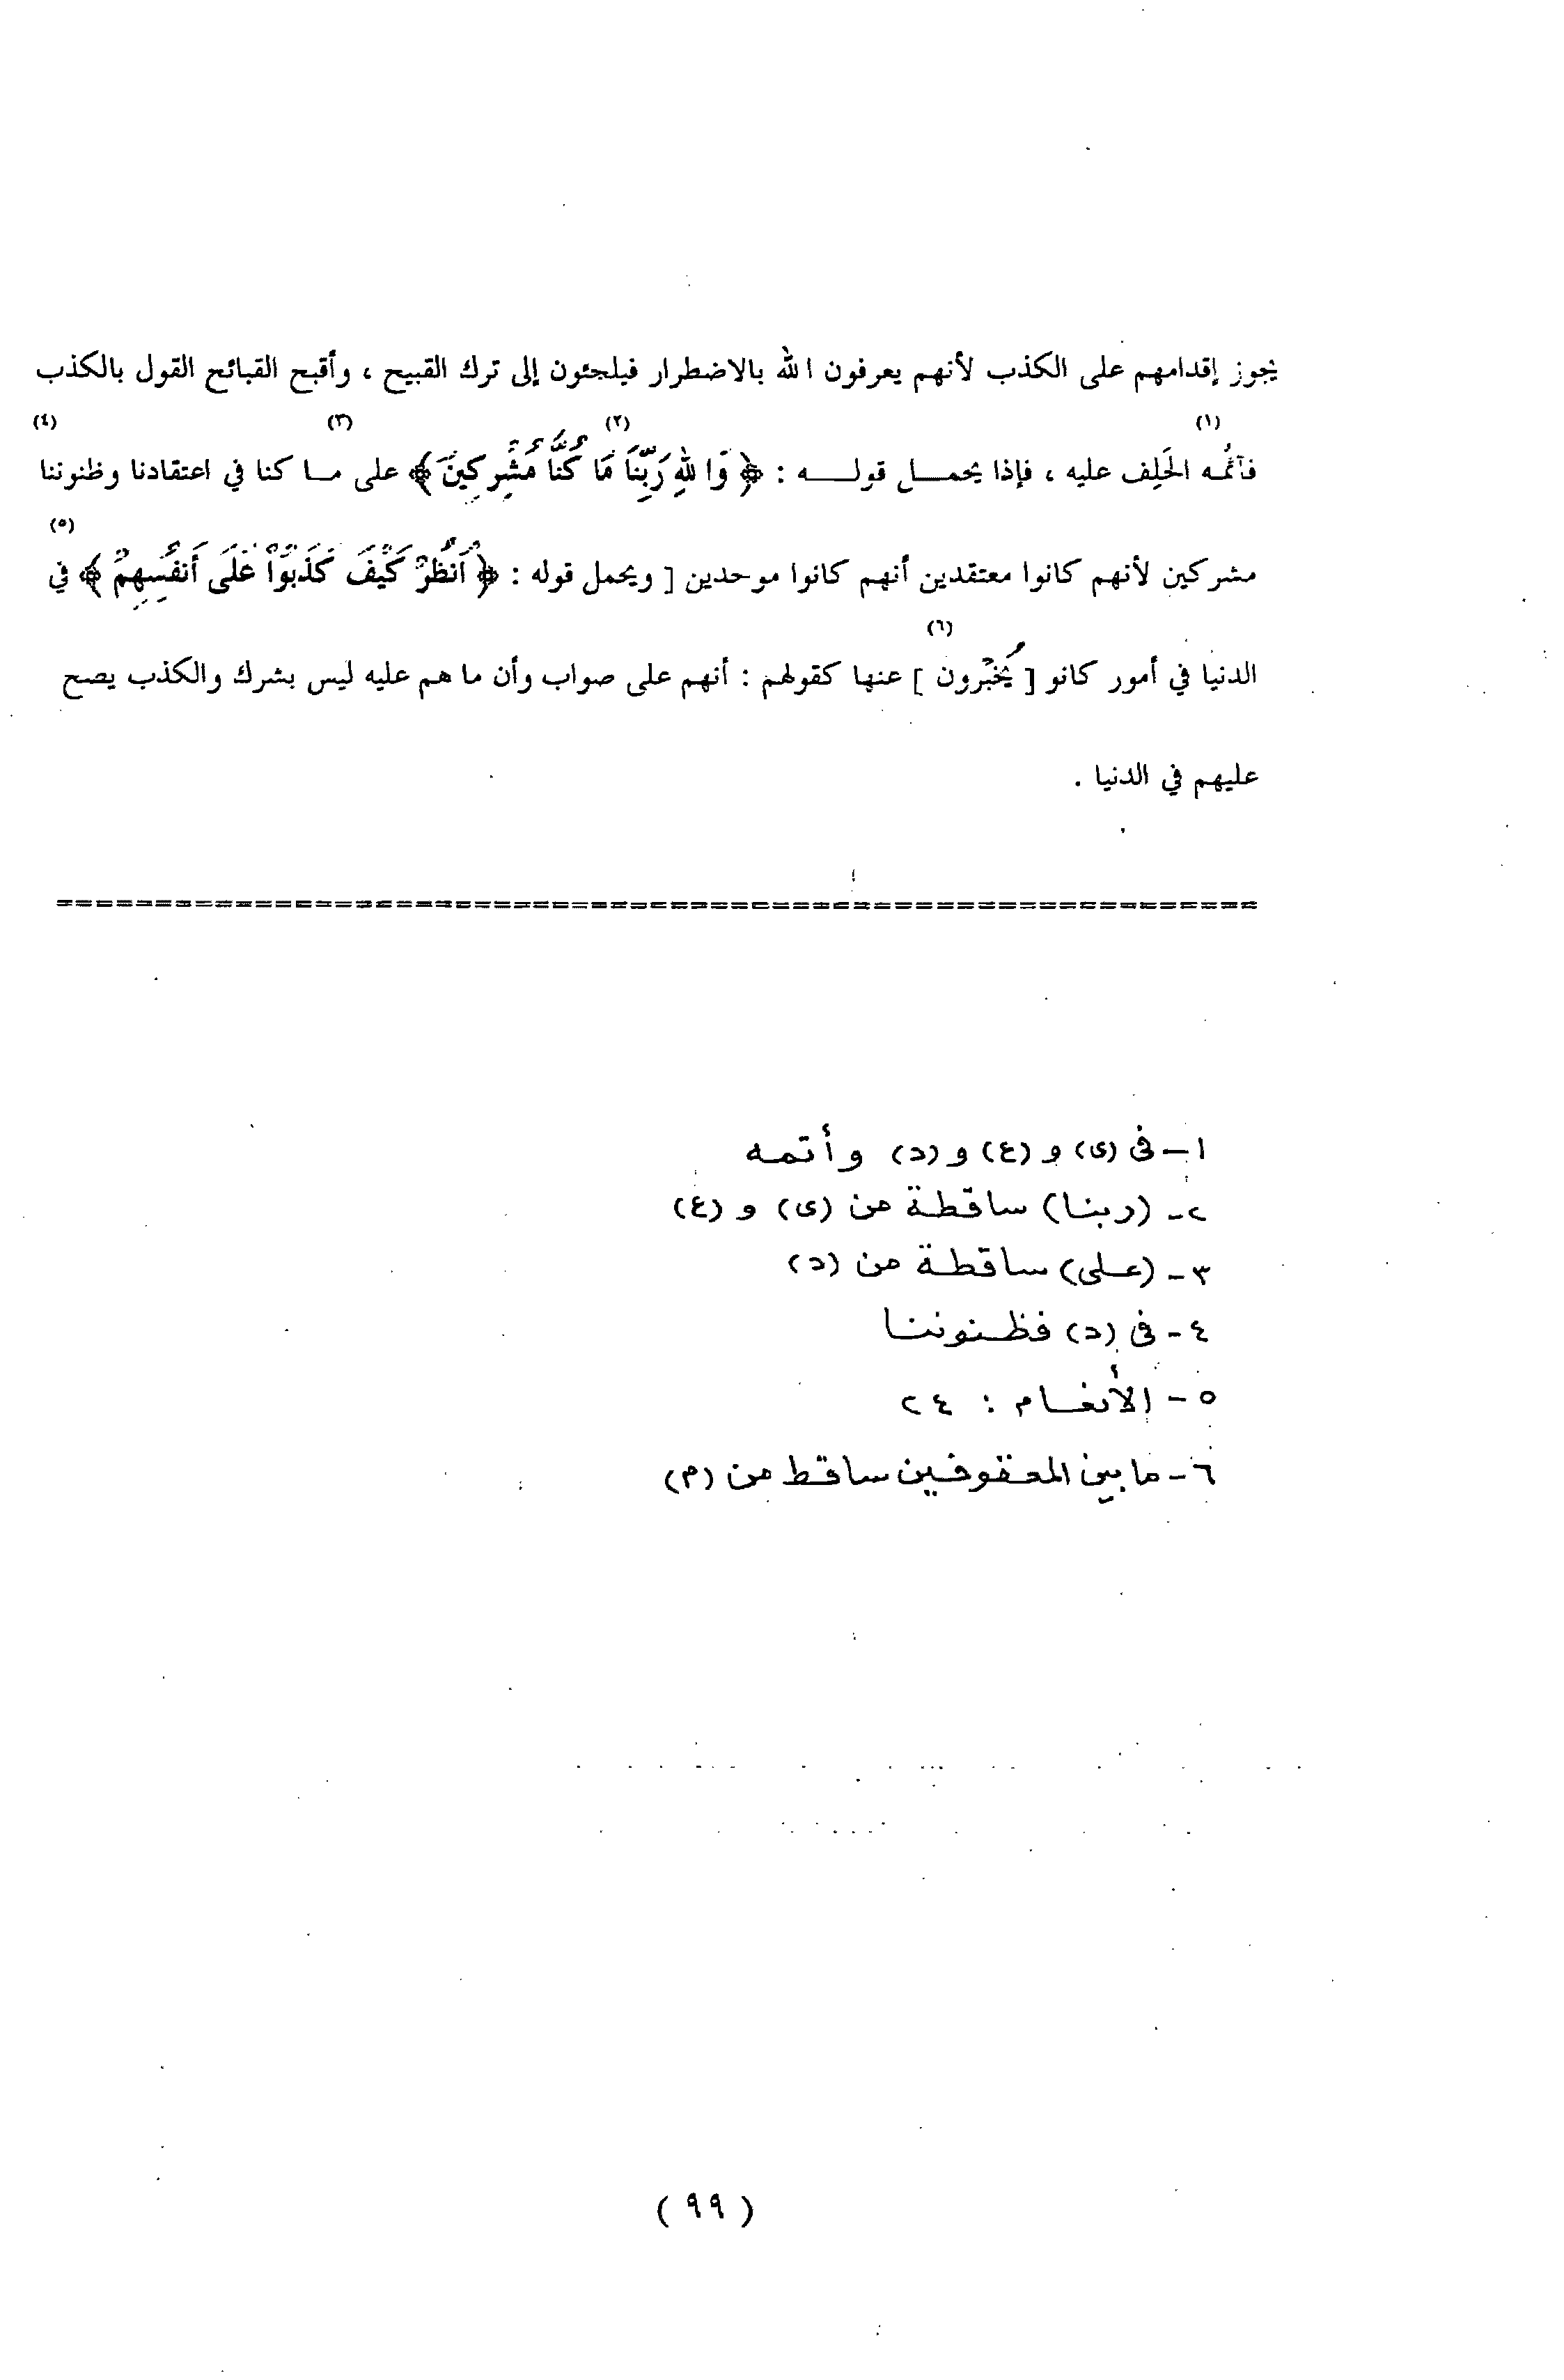 يجوز إقدامهم على الكذب لأنهم يعرفون الله بالاضطرار فيلجئون إلى ترك القبيح ، وأقبح القبائح القول بالكذب
(١) (٢) (٣) (٤)
فآتمُه الحَلِف عليه ، فإذا يحمـــل قولـــه : ﴿ وَاللهِ رَبِّنَا مَا كُنَّا مُشْرِكِينَ ﴾ على مـا كنا في اعتقادنا وظنوننا
(٥)
مشركين لأنهم كانوا معتقدين أنهم كانوا موحدين [ ويحمل قوله : ﴿ ٱنظُرْ كَيْفَ كَذَبُوا۟ عَلَى أَنفُسِهِمْ ﴾ في
(٦)
الدنيا في أمور كانو [ يُخْبَرون ] عنها كقولهم : أنهم على صواب وأن ما هم عليه ليس بشرك والكذب يصح
عليهم في الدنيا .
١ - في (ى) و (ع) و (د) وأتمه
٢ - (ربنا) ساقطة من (ى) و (ع)
٣ - (على) ساقطة من (د)
٤ - في (د) فظنوننا
٥ - الأنعام : ٢٤
٦ - ما بين المعقوفين ساقط من (م)
( ٩٩ )